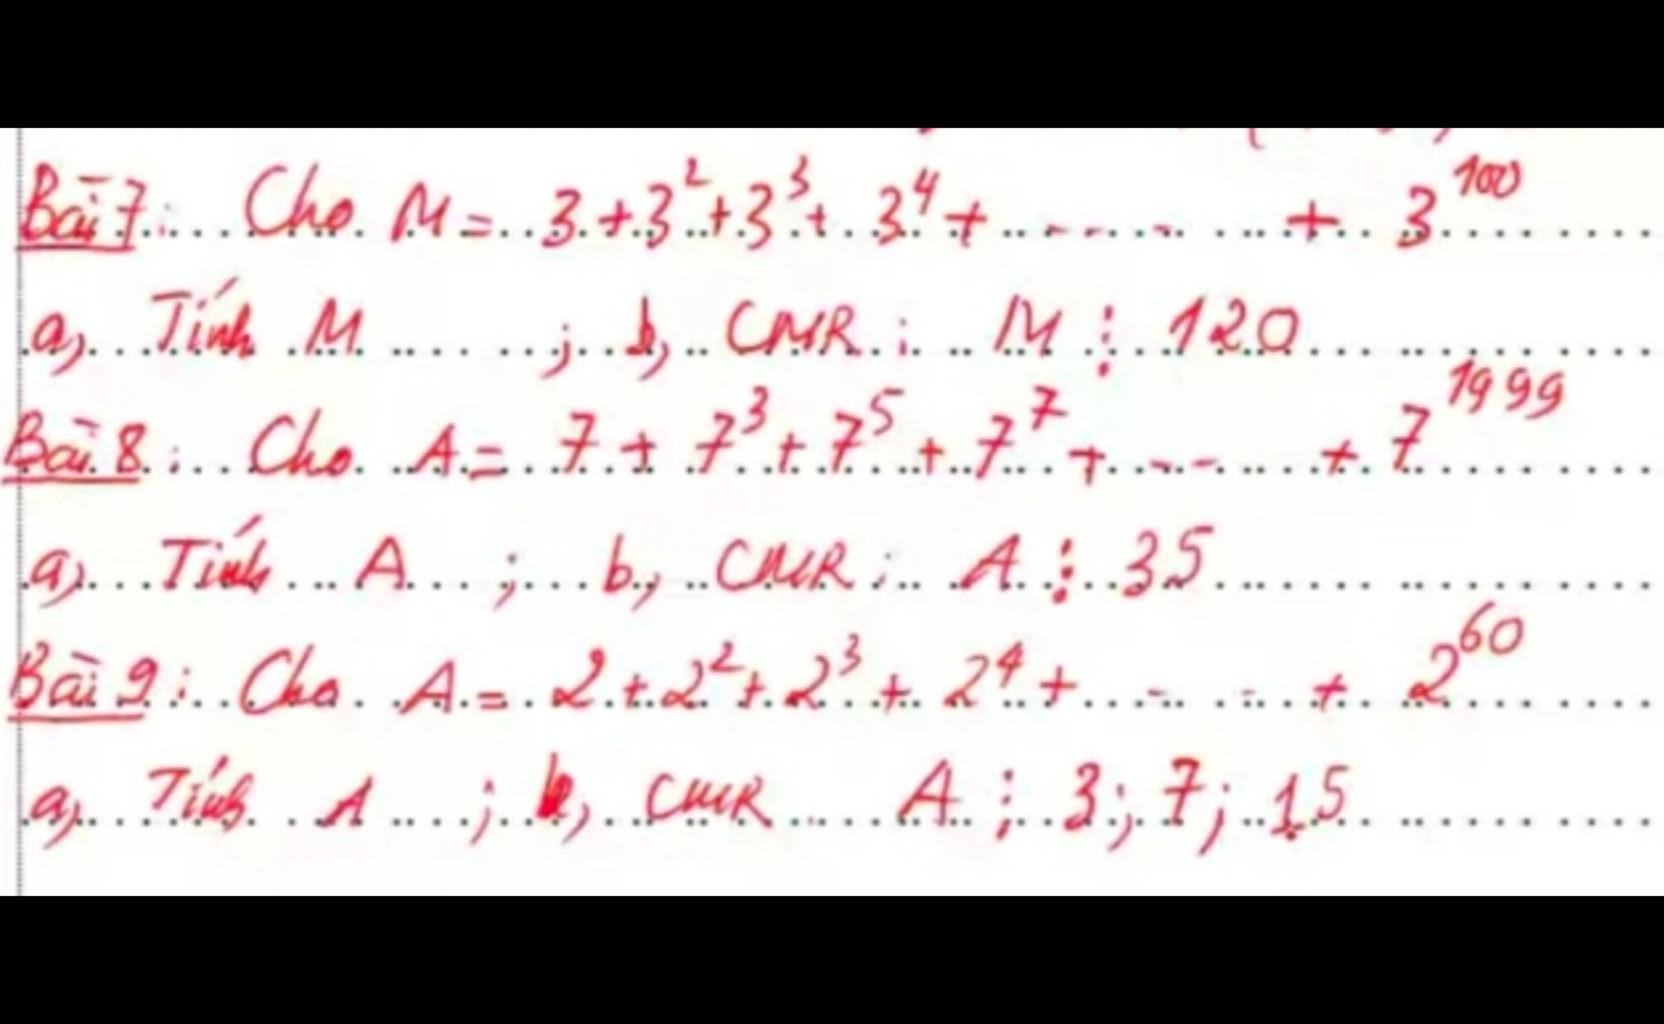 Bài 7: Cho M = 3 + 3² + 3³ + 3⁴ + ----- + 3¹⁰⁰
a, Tính M ; b, CMR: M ⋮ 120
Bài 8: Cho A = 7 + 7³ + 7⁵ + 7⁷ + --- + 7¹⁹⁹⁹
a, Tính A ; b, CMR: A ⋮ 35
Bài 9: Cho A = 2 + 2² + 2³ + 2⁴ + --- + 2⁶⁰
a, Tính A ; b, CMR A ⋮ 3; 7; 15